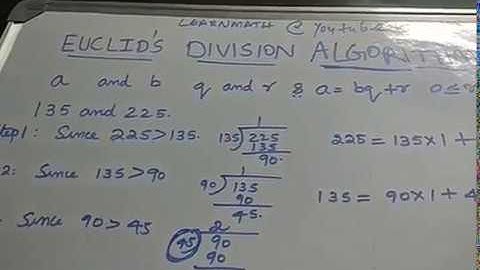 LEARNMATH @ Youtube
EUCLID'S DIVISION ALGORITHM
a and b q and r & a = bq+r 0 ≤ r
135 and 225.
Step 1: Since 225 > 135.
1
135) 225
135
90.
225 = 135 × 1 +
2: Since 135 > 90
1
90) 135
90
45.
135 = 90 × 1 + 4
Since 90 > 45
2
45) 90
90